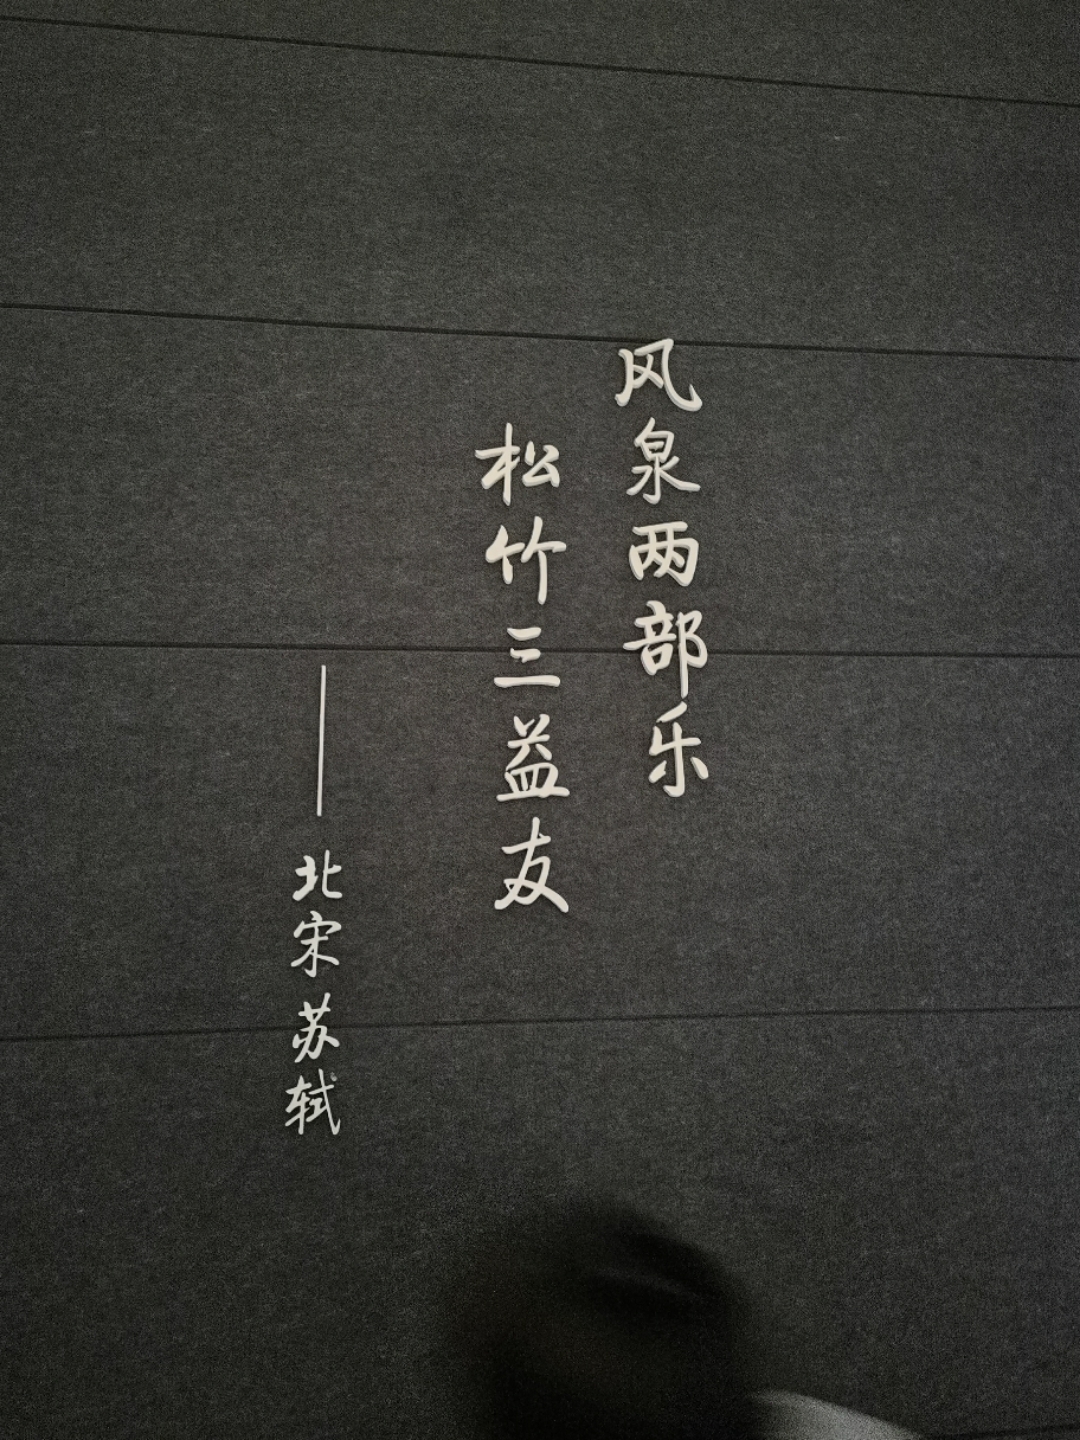 风泉两部乐
松竹三益友
——北宋苏轼